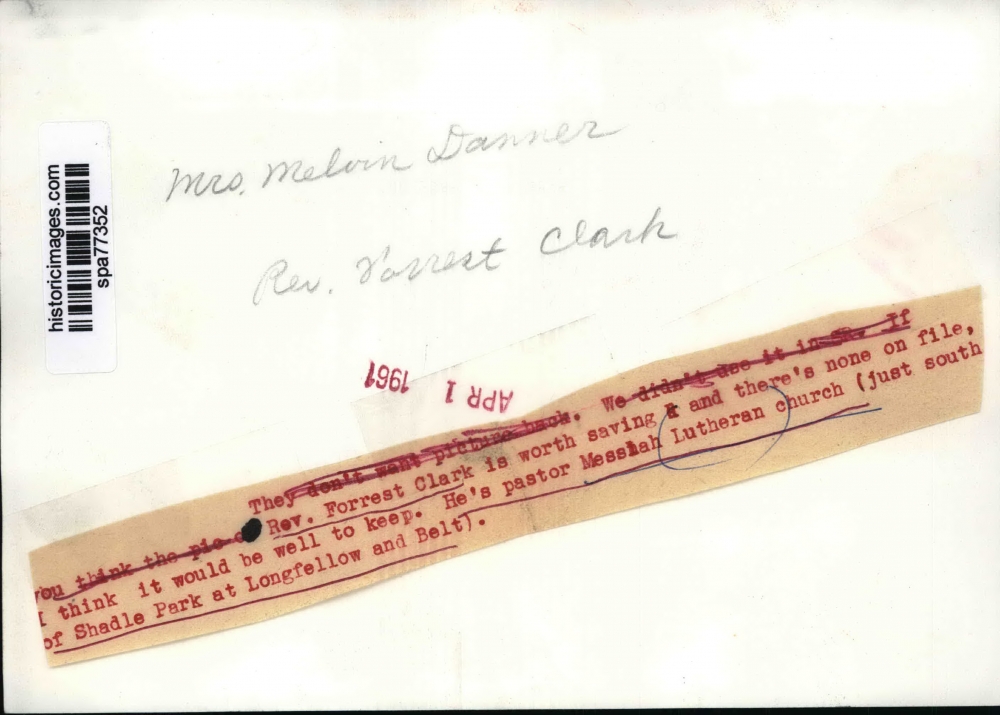 historicimages.com
spa77352
Mrs. Melvin Danner
Rev. Forrest Clark
APR 1 1961
They don't want picture back. We didn't use it in If
you think the pic o Rev. Forrest Clark is worth saving & and there's none on file,
I think it would be well to keep. He's pastor Messiah Lutheran church (just south
of Shadle Park at Longfellow and Belt).